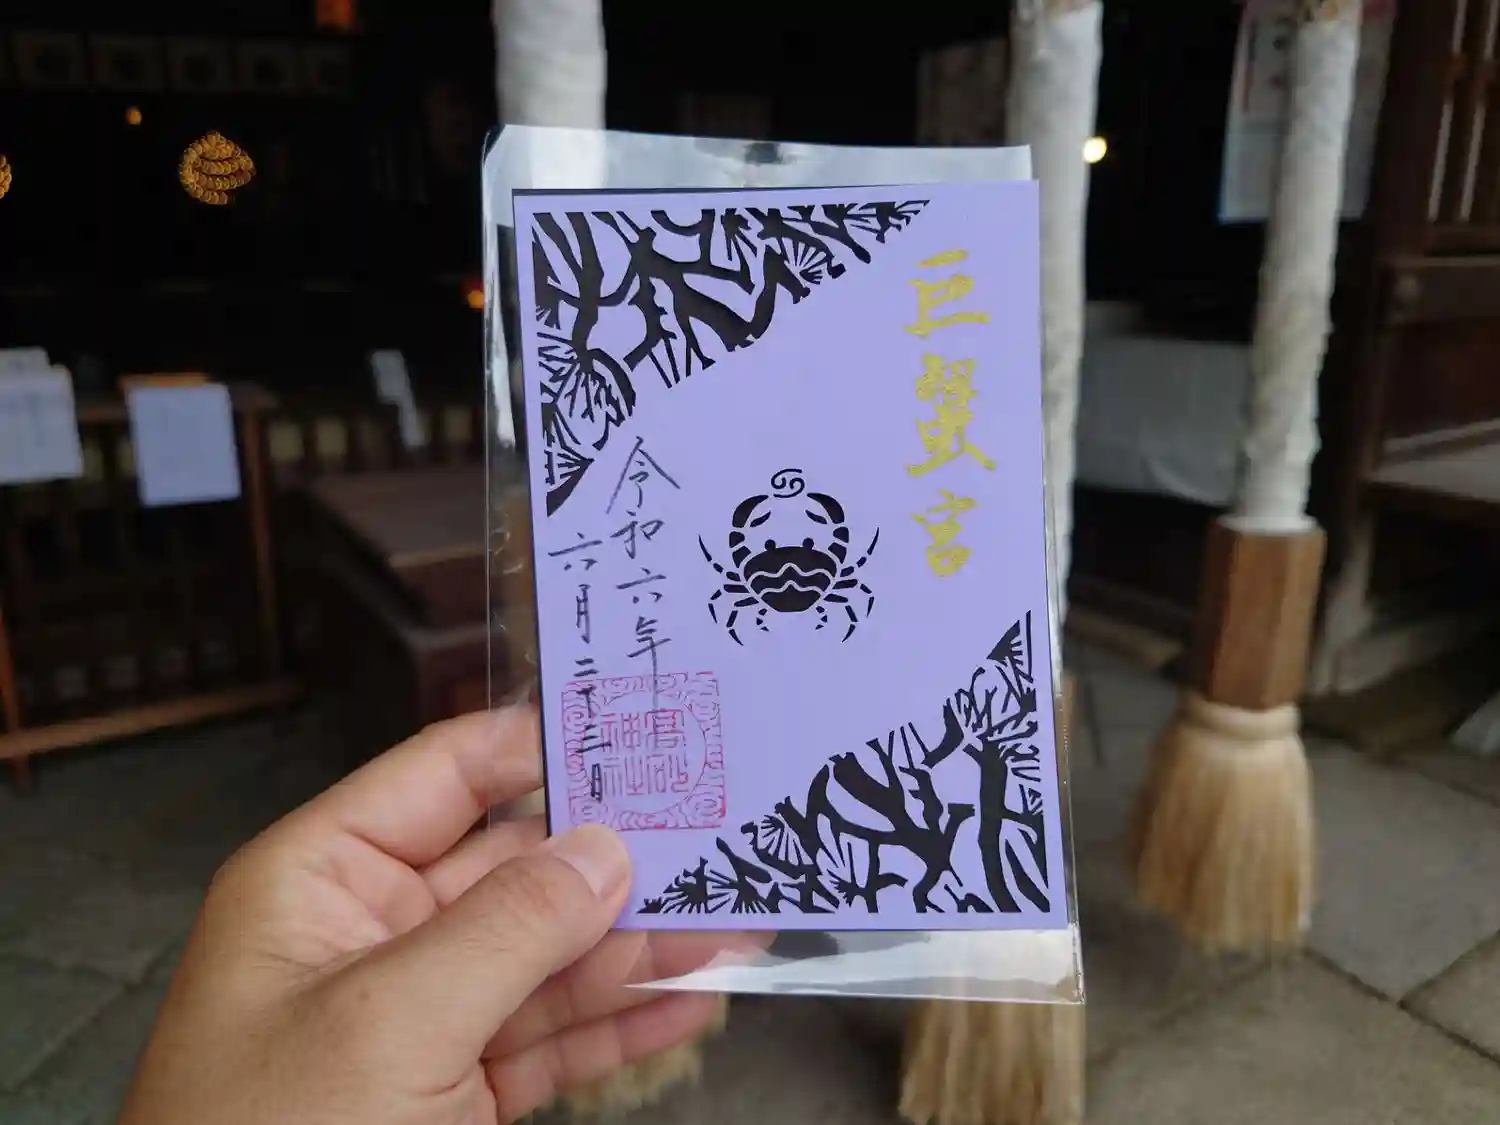 巨蟹宮
令和六年
六月二十三日
高砂
神社